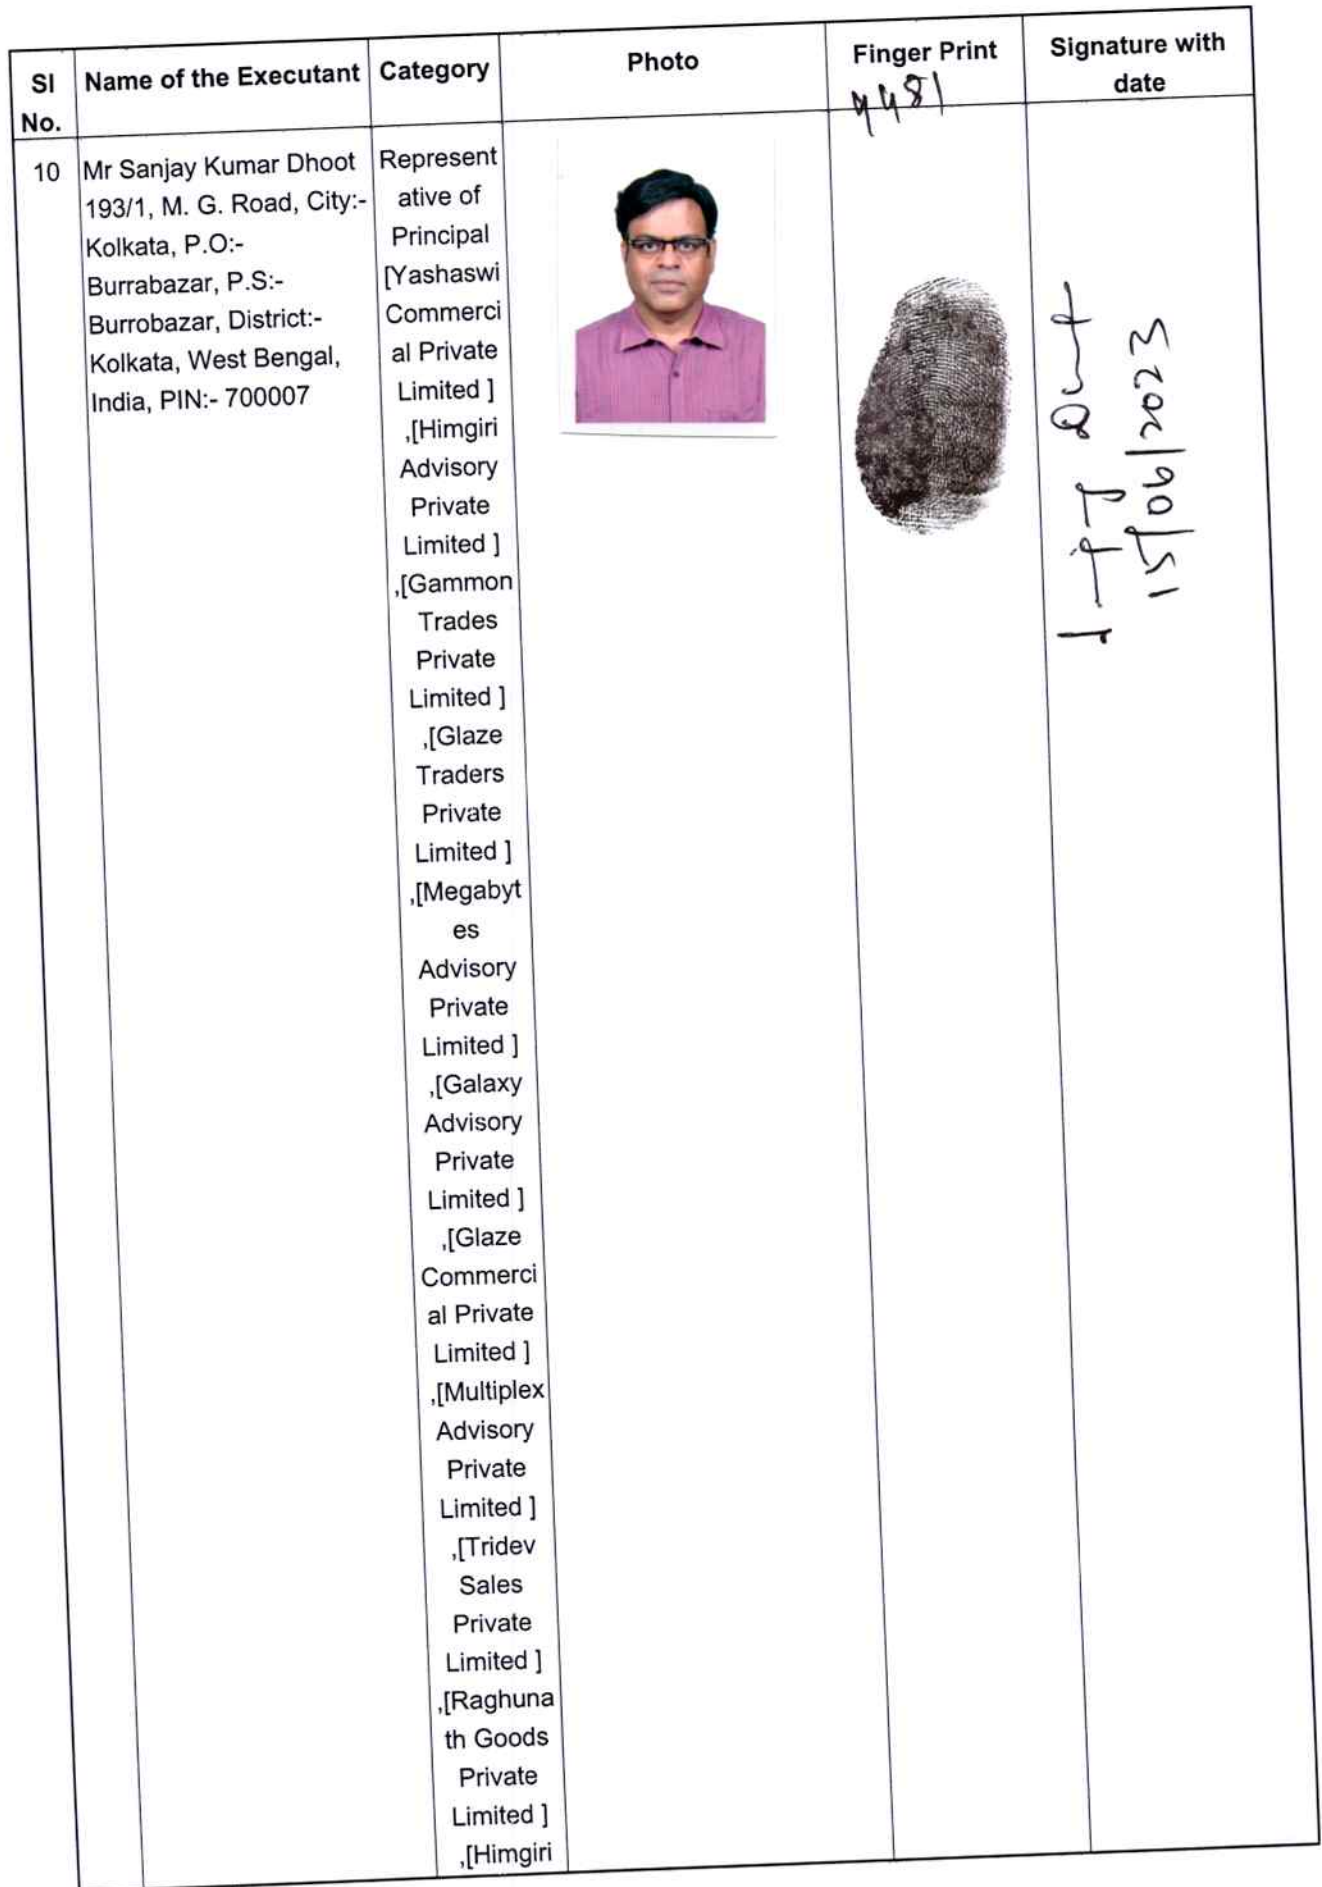 Sl No.
Name of the Executant
Category
Photo
Finger Print
Signature with date
4481
10
Mr Sanjay Kumar Dhoot
193/1, M. G. Road, City:-
Kolkata, P.O:-
Burrabazar, P.S:-
Burrobazar, District:-
Kolkata, West Bengal,
India, PIN:- 700007
Represent
ative of
Principal
[Yashaswi
Commerci
al Private
Limited ]
,[Himgiri
Advisory
Private
Limited ]
,[Gammon
Trades
Private
Limited ]
,[Glaze
Traders
Private
Limited ]
,[Megabyt
es
Advisory
Private
Limited ]
,[Galaxy
Advisory
Private
Limited ]
,[Glaze
Commerci
al Private
Limited ]
,[Multiplex
Advisory
Private
Limited ]
,[Tridev
Sales
Private
Limited ]
,[Raghuna
th Goods
Private
Limited ]
,[Himgiri
15/06/2023